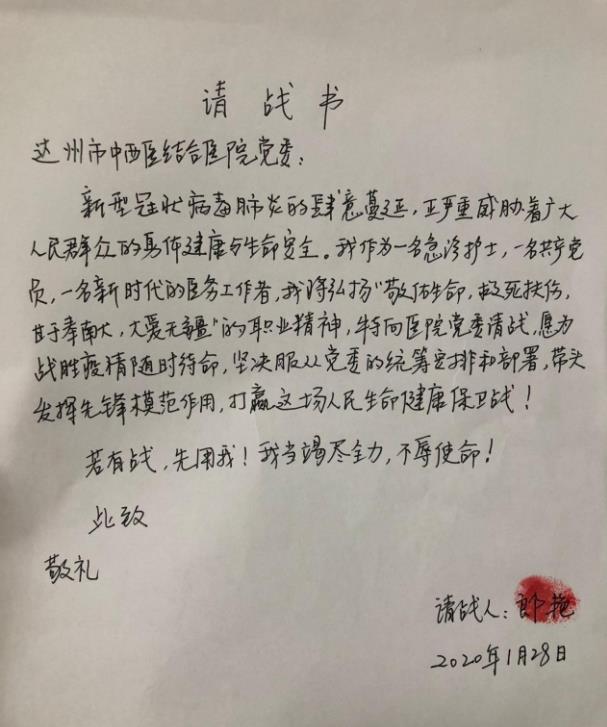 请战书
达州市中西医结合医院党委：
新型冠状病毒肺炎的肆意蔓延，正严重威胁着广大
人民群众的身体健康与生命安全。我作为一名急诊护士，一名共产党
员，一名新时代的医务工作者，我将弘扬“敬佑生命，救死扶伤，
甘于奉献，大爱无疆”的职业精神，特向医院党委请战，愿为
战胜疫情随时待命，坚决服从党委的统筹安排和部署，带头
发挥先锋模范作用，打赢这场人民生命健康保卫战！
若有战，先用我！我当竭尽全力，不辱使命！
此致
敬礼
请战人：郎艳
2020年1月28日